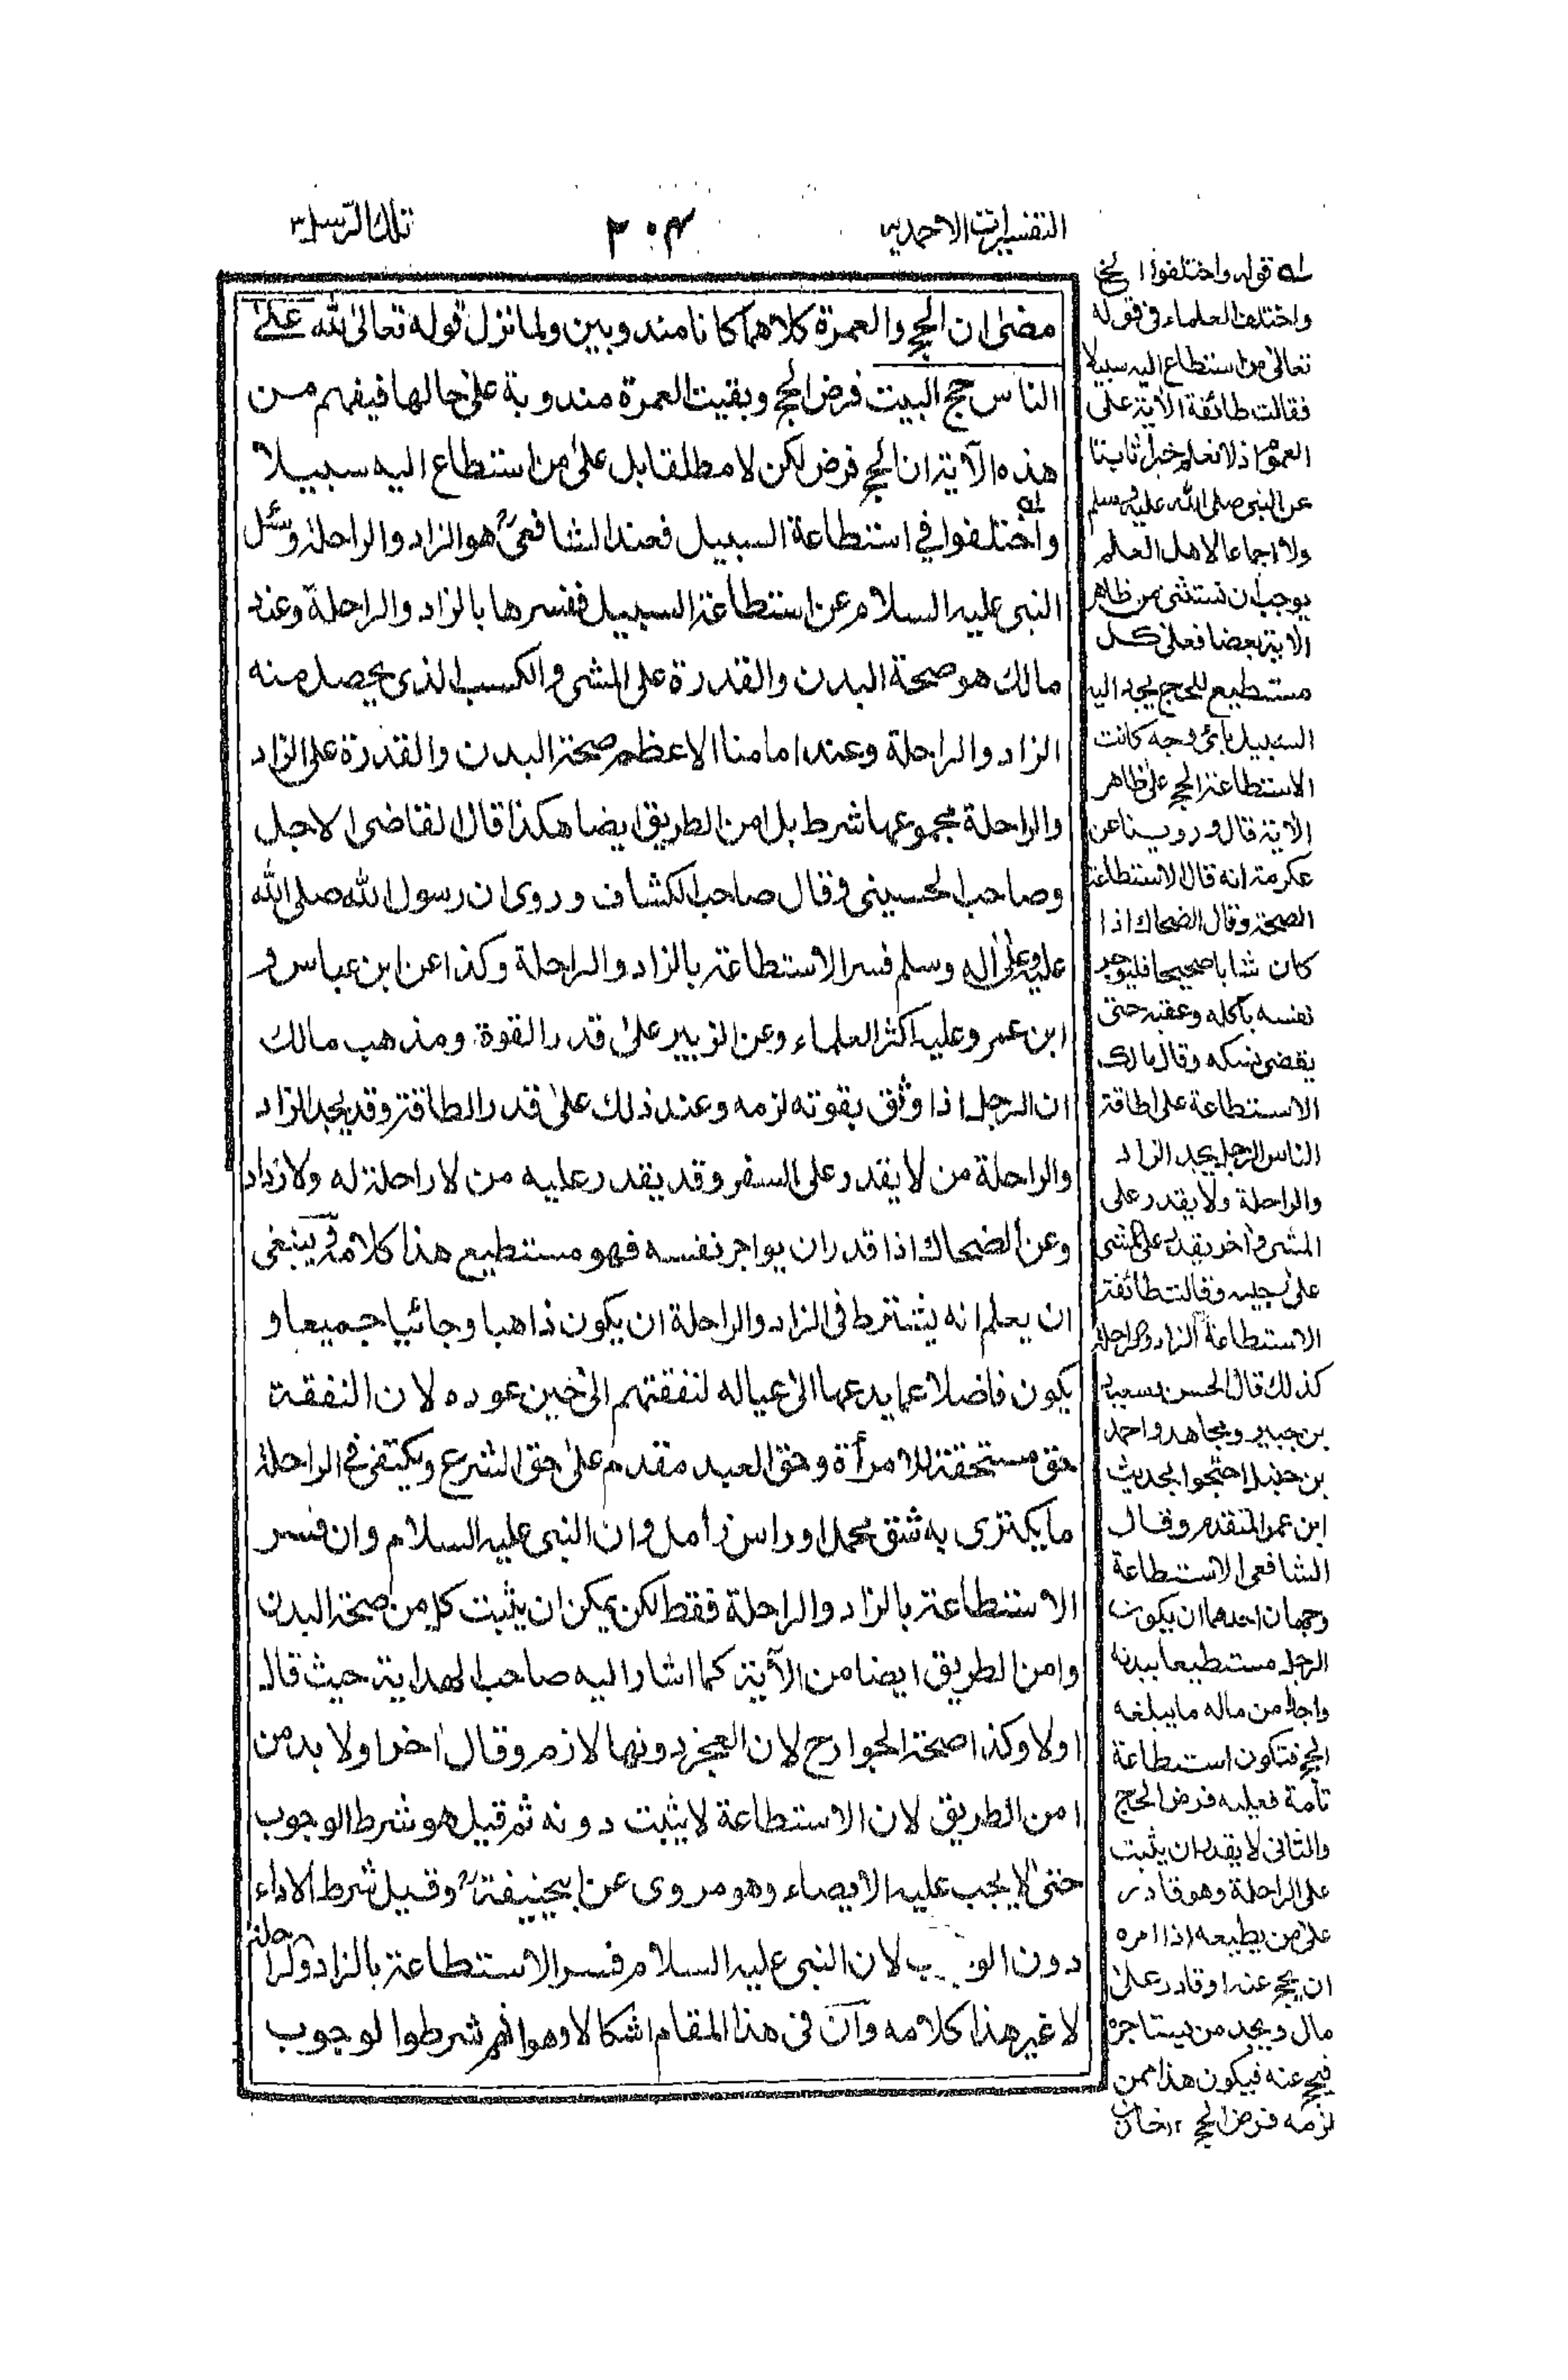 التفسيرات الاحمدية
٢٠٤
تلك الرسل ٣
مضى ان الحج والعمرة كلاهما كانا مندوبين ولما نزل قوله تعالى لله على
الناس حج البيت فرض الحج وبقيت العمرة مندوبة على حالها فيفهم من
هذه الآية ان الحج فرض لكن لا مطلقا بل على من استطاع اليه سبيلا
واختلفوا في استطاعة السبيل فعند الشافعي هو الزاد والراحلة وسئل
النبي عليه السلام عن استطاعة السبيل ففسرها بالزاد والراحلة وعند
مالك هو صحة البدن والقدرة على المشي والكسب الذي يحصل منه
الزاد والراحلة وعند امامنا الاعظم صحة البدن والقدرة على الزاد
والراحلة مجموعها شرط بل امن الطريق ايضا هكذا قال القاضي الاجل
وصاحب الحسيني وقال صاحب الكشاف وروى ان رسول الله صلى الله
عليه وعلى اله وسلم فسر الاستطاعة بالزاد والراحلة وكذا عن ابن عباس و
ابن عمر وعليه اكثر العلماء وعن الزبير على قدر القوة ومذهب مالك
ان الرجل اذا وثق بقوته لزمه وعند ذلك على قدر الطاقة وقد يجد الزاد
والراحلة من لا يقدر على السفر وقد يقدر عليه من لا راحلة له ولا زاد
وعن الضحاك اذا قدر ان يواجر نفسه فهو مستطيع هذا كلامه وينبغي
ان يعلم انه يشترط في الزاد والراحلة ان يكون ذاهبا وجائيا جميعا و
يكون فاضلا عما يدعها الى عياله لنفقتهم الى حين عوده لان النفقة
حق مستحقة للامرأة وحق العبد مقدم على حق الشرع ويكتفى في الراحلة
ما يكترى به شق محمل او راس زامل وان النبي عليه السلام وان فسر
الاستطاعة بالزاد والراحلة فقط لكن يمكن ان يثبت كل من صحة البدن
وامن الطريق ايضا من الآية كما اشار اليه صاحب الهداية حيث قال
اولا وكذا صحة الجوارح لان العجز دونها لازم وقال اخرا ولا بد من
امن الطريق لان الاستطاعة لا يثبت دونه ثم قيل هو شرط الوجوب
حتى لا يجب عليه الايصاء وهو مروى عن ابيحنيفة وقيل شرط الاداء
دون الو ب لان النبي عليه السلام فسر الاستطاعة بالزاد والراحلة
لا غير هذا كلامه وآن في هذا المقام اشكالا وهو انهم شرطوا لوجوب
له قوله واختلفوا الخ
واختلف العلماء في قوله
تعالى من استطاع اليه سبيلا
فقالت طائفة الاية على
العموم اذ لا نعلم خبرا ثابتا
عن النبي صلى الله عليه وسلم
ولا اجماعا لاهل العلم
يوجب ان نستثني من ظاهر
الاية بعضا فعلى كل
مستطيع للحج يجد اليه
السبيل باي وجه كانت
الاستطاعة الحج على ظاهر
الاية قال وروينا عن
عكرمة انه قال الاستطاعة
الصحة وقال الضحاك اذا
كان شابا صحيحا فليوجر
نفسه باكله وعقبه حتى
يقضي نسكه وقال مالك
الاستطاعة على اطاقة
الناس الرجل يجد الزاد
والراحلة ولا يقدر على
المشي واخر يقدر على المشي
على رجليه وقالت طائفة
الاستطاعة الزاد والراحلة
كذلك قال الحسن وسعيد
بن جبير ومجاهد واحمد
بن حنبل احتجوا بحديث
ابن عمر المتقدم وقال
الشافعي الاستطاعة
وجهان احدهما ان يكون
الرجل مستطيعا ببدنه
واجدا من ماله ما يبلغه
الحج فتكون استطاعة
تامة فعليه فرض الحج
والثاني لا يقدر ان يثبت
على الراحلة وهو قادر
على من يطيعه اذا امره
ان يحج عنه او قادر على
مال ويجد من يستاجره
فيحج عنه فيكون هذا ممن
لزمه فرض الحج ١٢ خازن